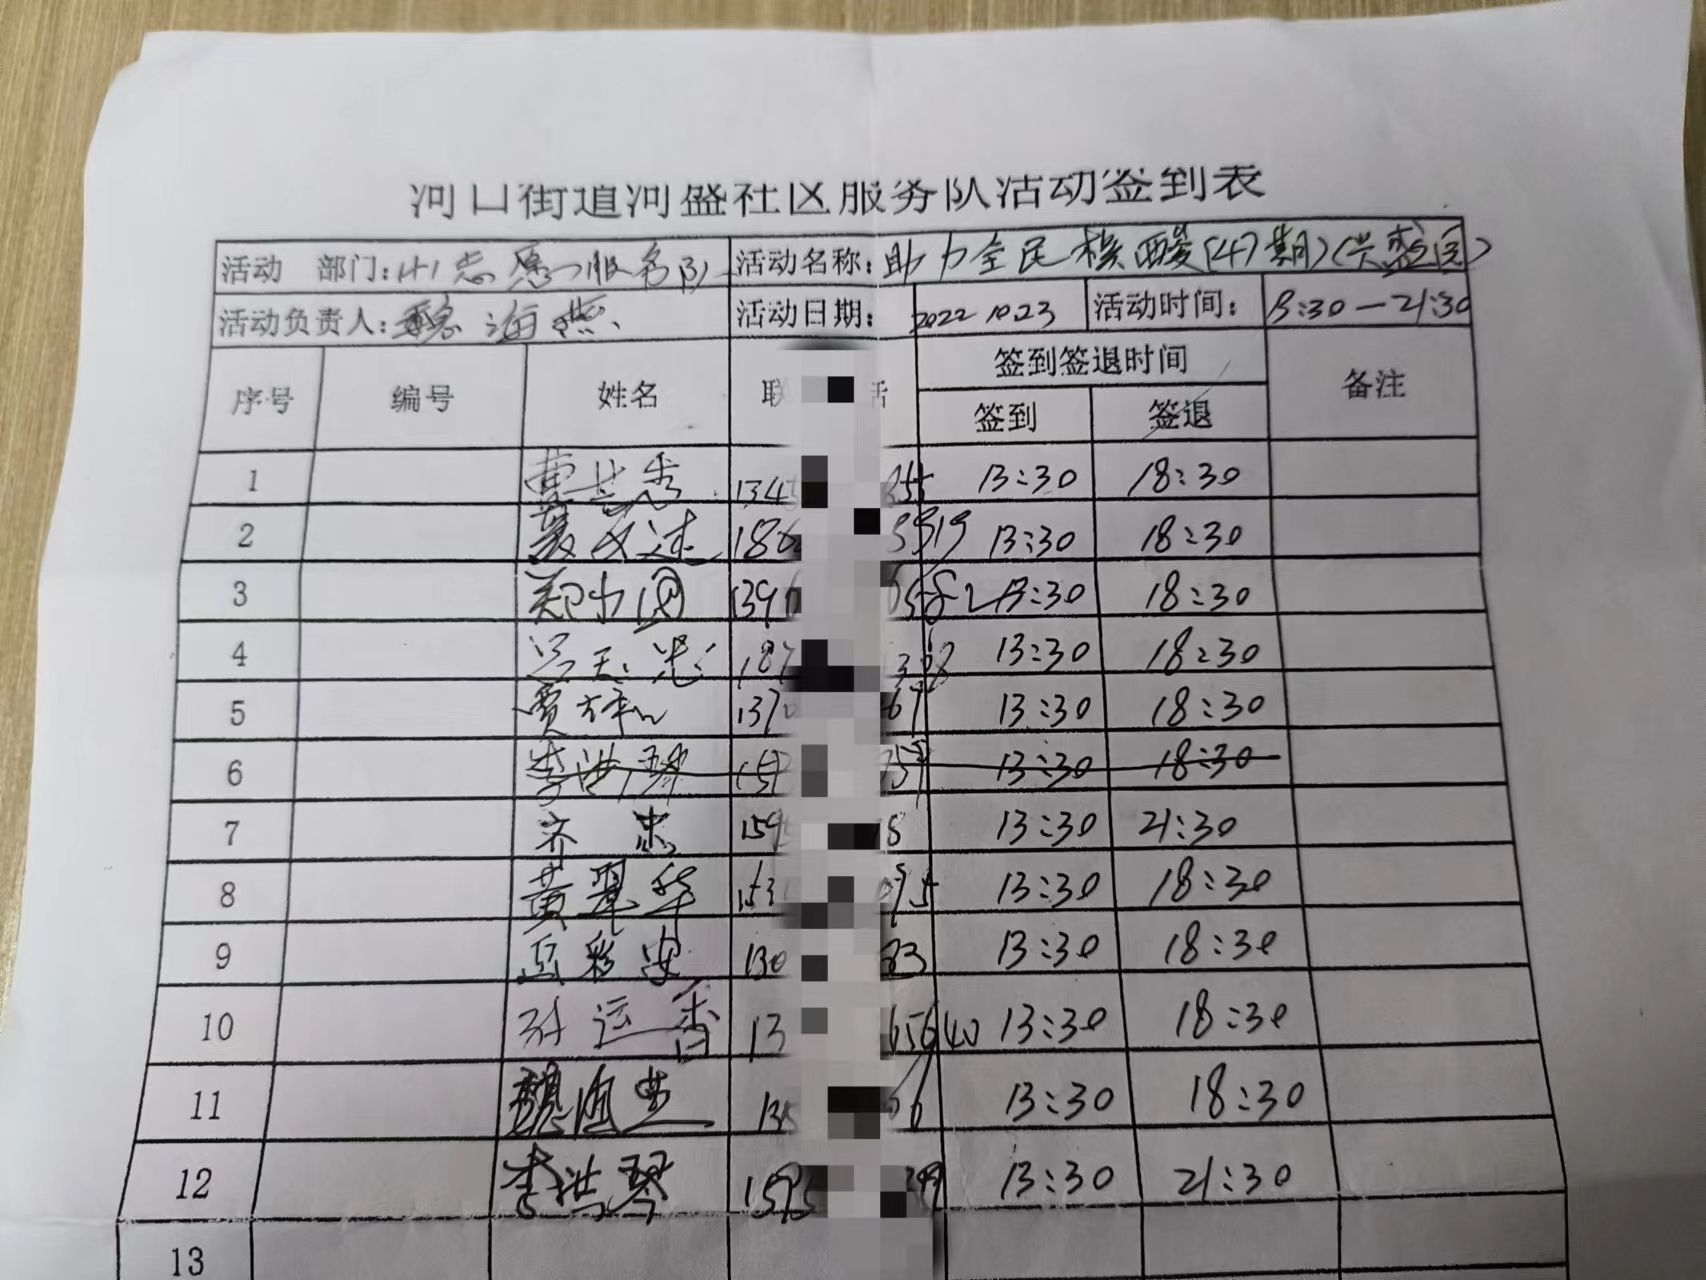 河口街道河盛社区服务队活动签到表
活动 部门: 志愿服务队 活动名称: 助力全民核酸(47期)(兴盛园)
活动负责人: 魏海燕 活动日期: 2022 10.23 活动时间: 13:30—21:30
序号 编号 姓名 联 话 签到签退时间 备注
签到 签退
1 1345 355 13:30 18:30
2 186 3919 13:30 18:30
3 139 0582 13:30 18:30
4 187 13:30 18:30
5 贾 1370 67 13:30 18:30
6 李洪琴 13:30 18:30
7 齐忠 159 18 13:30 21:30
8 黄翠华 153 095 13:30 18:30
9 彩 130 83 13:30 18:30
10 孙运香 13 65640 13:30 18:30
11 魏海燕 135 66 13:30 18:30
12 李洪琴 1595 299 13:30 21:30
13